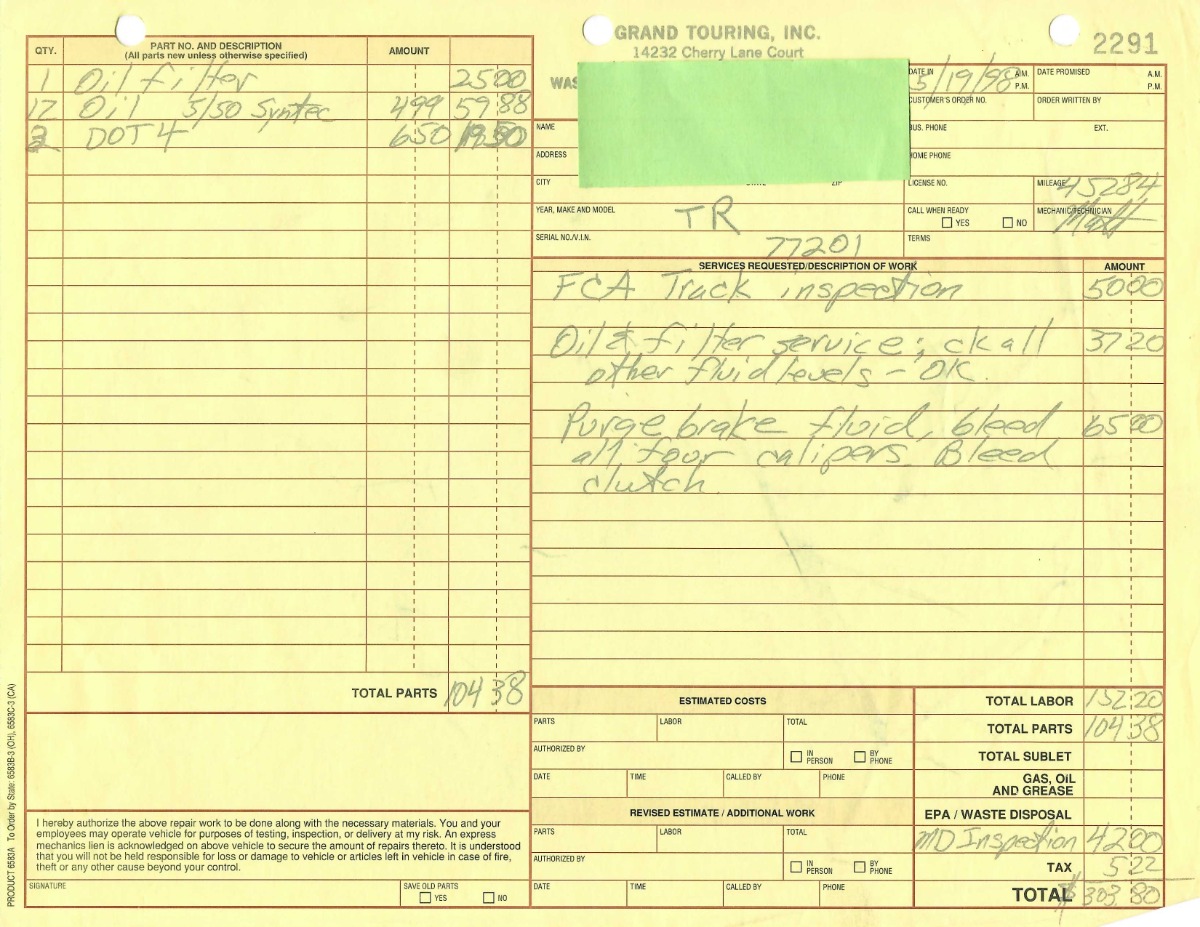 GRAND TOURING, INC.
14232 Cherry Lane Court
2291
QTY.
PART NO. AND DESCRIPTION
(All parts new unless otherwise specified)
AMOUNT
1 Oil filter 25 00
12 Oil 5/50 Syntec 4 99 59 88
3 DOT 4 6 50 19 50
TOTAL PARTS 104 38
DATE IN 5/19/98 A.M. P.M.
DATE PROMISED A.M. P.M.
CUSTOMER'S ORDER NO.
ORDER WRITTEN BY
NAME
BUS. PHONE EXT.
ADDRESS
HOME PHONE
CITY
LICENSE NO.
MILEAGE 45284
YEAR, MAKE AND MODEL TR
CALL WHEN READY
YES NO
MECHANIC/TECHNICIAN Matt
SERIAL NO./V.I.N. 77201
TERMS
SERVICES REQUESTED/DESCRIPTION OF WORK AMOUNT
FCA Track inspection 50 00
Oil & filter service; ck all 37 20
other fluid levels - OK.
Purge brake fluid, bleed 65 00
all four calipers. Bleed
clutch.
ESTIMATED COSTS
PARTS LABOR TOTAL
AUTHORIZED BY IN PERSON BY PHONE
DATE TIME CALLED BY PHONE
REVISED ESTIMATE / ADDITIONAL WORK
PARTS LABOR TOTAL
AUTHORIZED BY IN PERSON BY PHONE
DATE TIME CALLED BY PHONE
TOTAL LABOR 152 20
TOTAL PARTS 104 38
TOTAL SUBLET
GAS, OIL
AND GREASE
EPA / WASTE DISPOSAL
MD Inspection 42 00
TAX 5 22
TOTAL $303.80
I hereby authorize the above repair work to be done along with the necessary materials. You and your
employees may operate vehicle for purposes of testing, inspection, or delivery at my risk. An express
mechanics lien is acknowledged on above vehicle to secure the amount of repairs thereto. It is understood
that you will not be held responsible for loss or damage to vehicle or articles left in vehicle in case of fire,
theft or any other cause beyond your control.
SIGNATURE
SAVE OLD PARTS
YES NO
PRODUCT 6583A To Order by State: 6583B-3 (OH), 6583C-3 (CA)